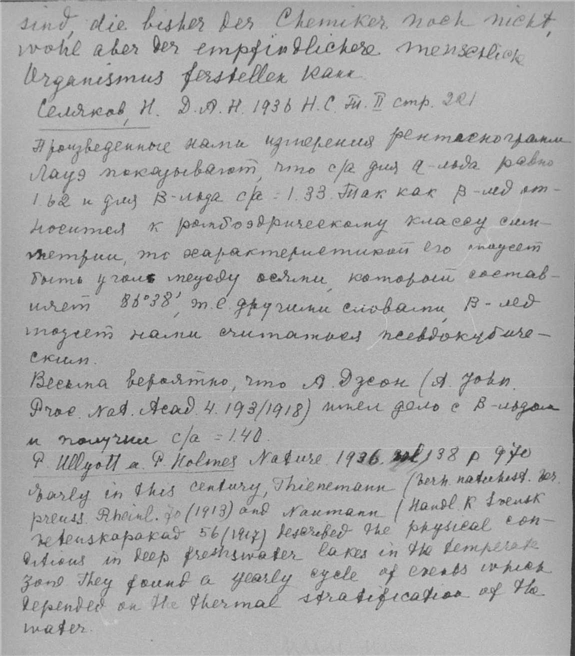 sind, die bisher der Chemiker noch nicht,
wohl aber der empfindlichere menschlich
Organismus feststellen kann.
Селяков, Н. Д.А.Н. 1936 Н.С. Т. II стр. 221
Произведенные нами измерения рентгенограмм
Лауэ показывают, что c/a для α-льда равно
1.62 и для β-льда c/a = 1.33. Так как β-лед от-
носится к ромбоэдрическому классу сим-
метрии, то характеристикой его может
быть угол между осями, который состав-
ляет 86°38', т.е. другими словами, β-лед
может нами считаться псевдокубиче-
ским.
Весьма вероятно, что А. Джон (A. John.
Proc. Nat. Acad. 4. 193/1918) имел дело с β-льдом
и получил c/a = 1.40.
P. Ullyott a. P. Holmes Nature. 1936 138 p 970
Early in this century, Thienemann (Verh. naturhist. Ver.
preuss. Rheinl. 70 (1913) and Naumann (Handl. K. Svensk
Vetenskapakad 56 (1917) described the physical con-
ditions in deep freshwater lakes in the temperate
zone They found a yearly cycle of events which
depended on the thermal stratification of the
water.